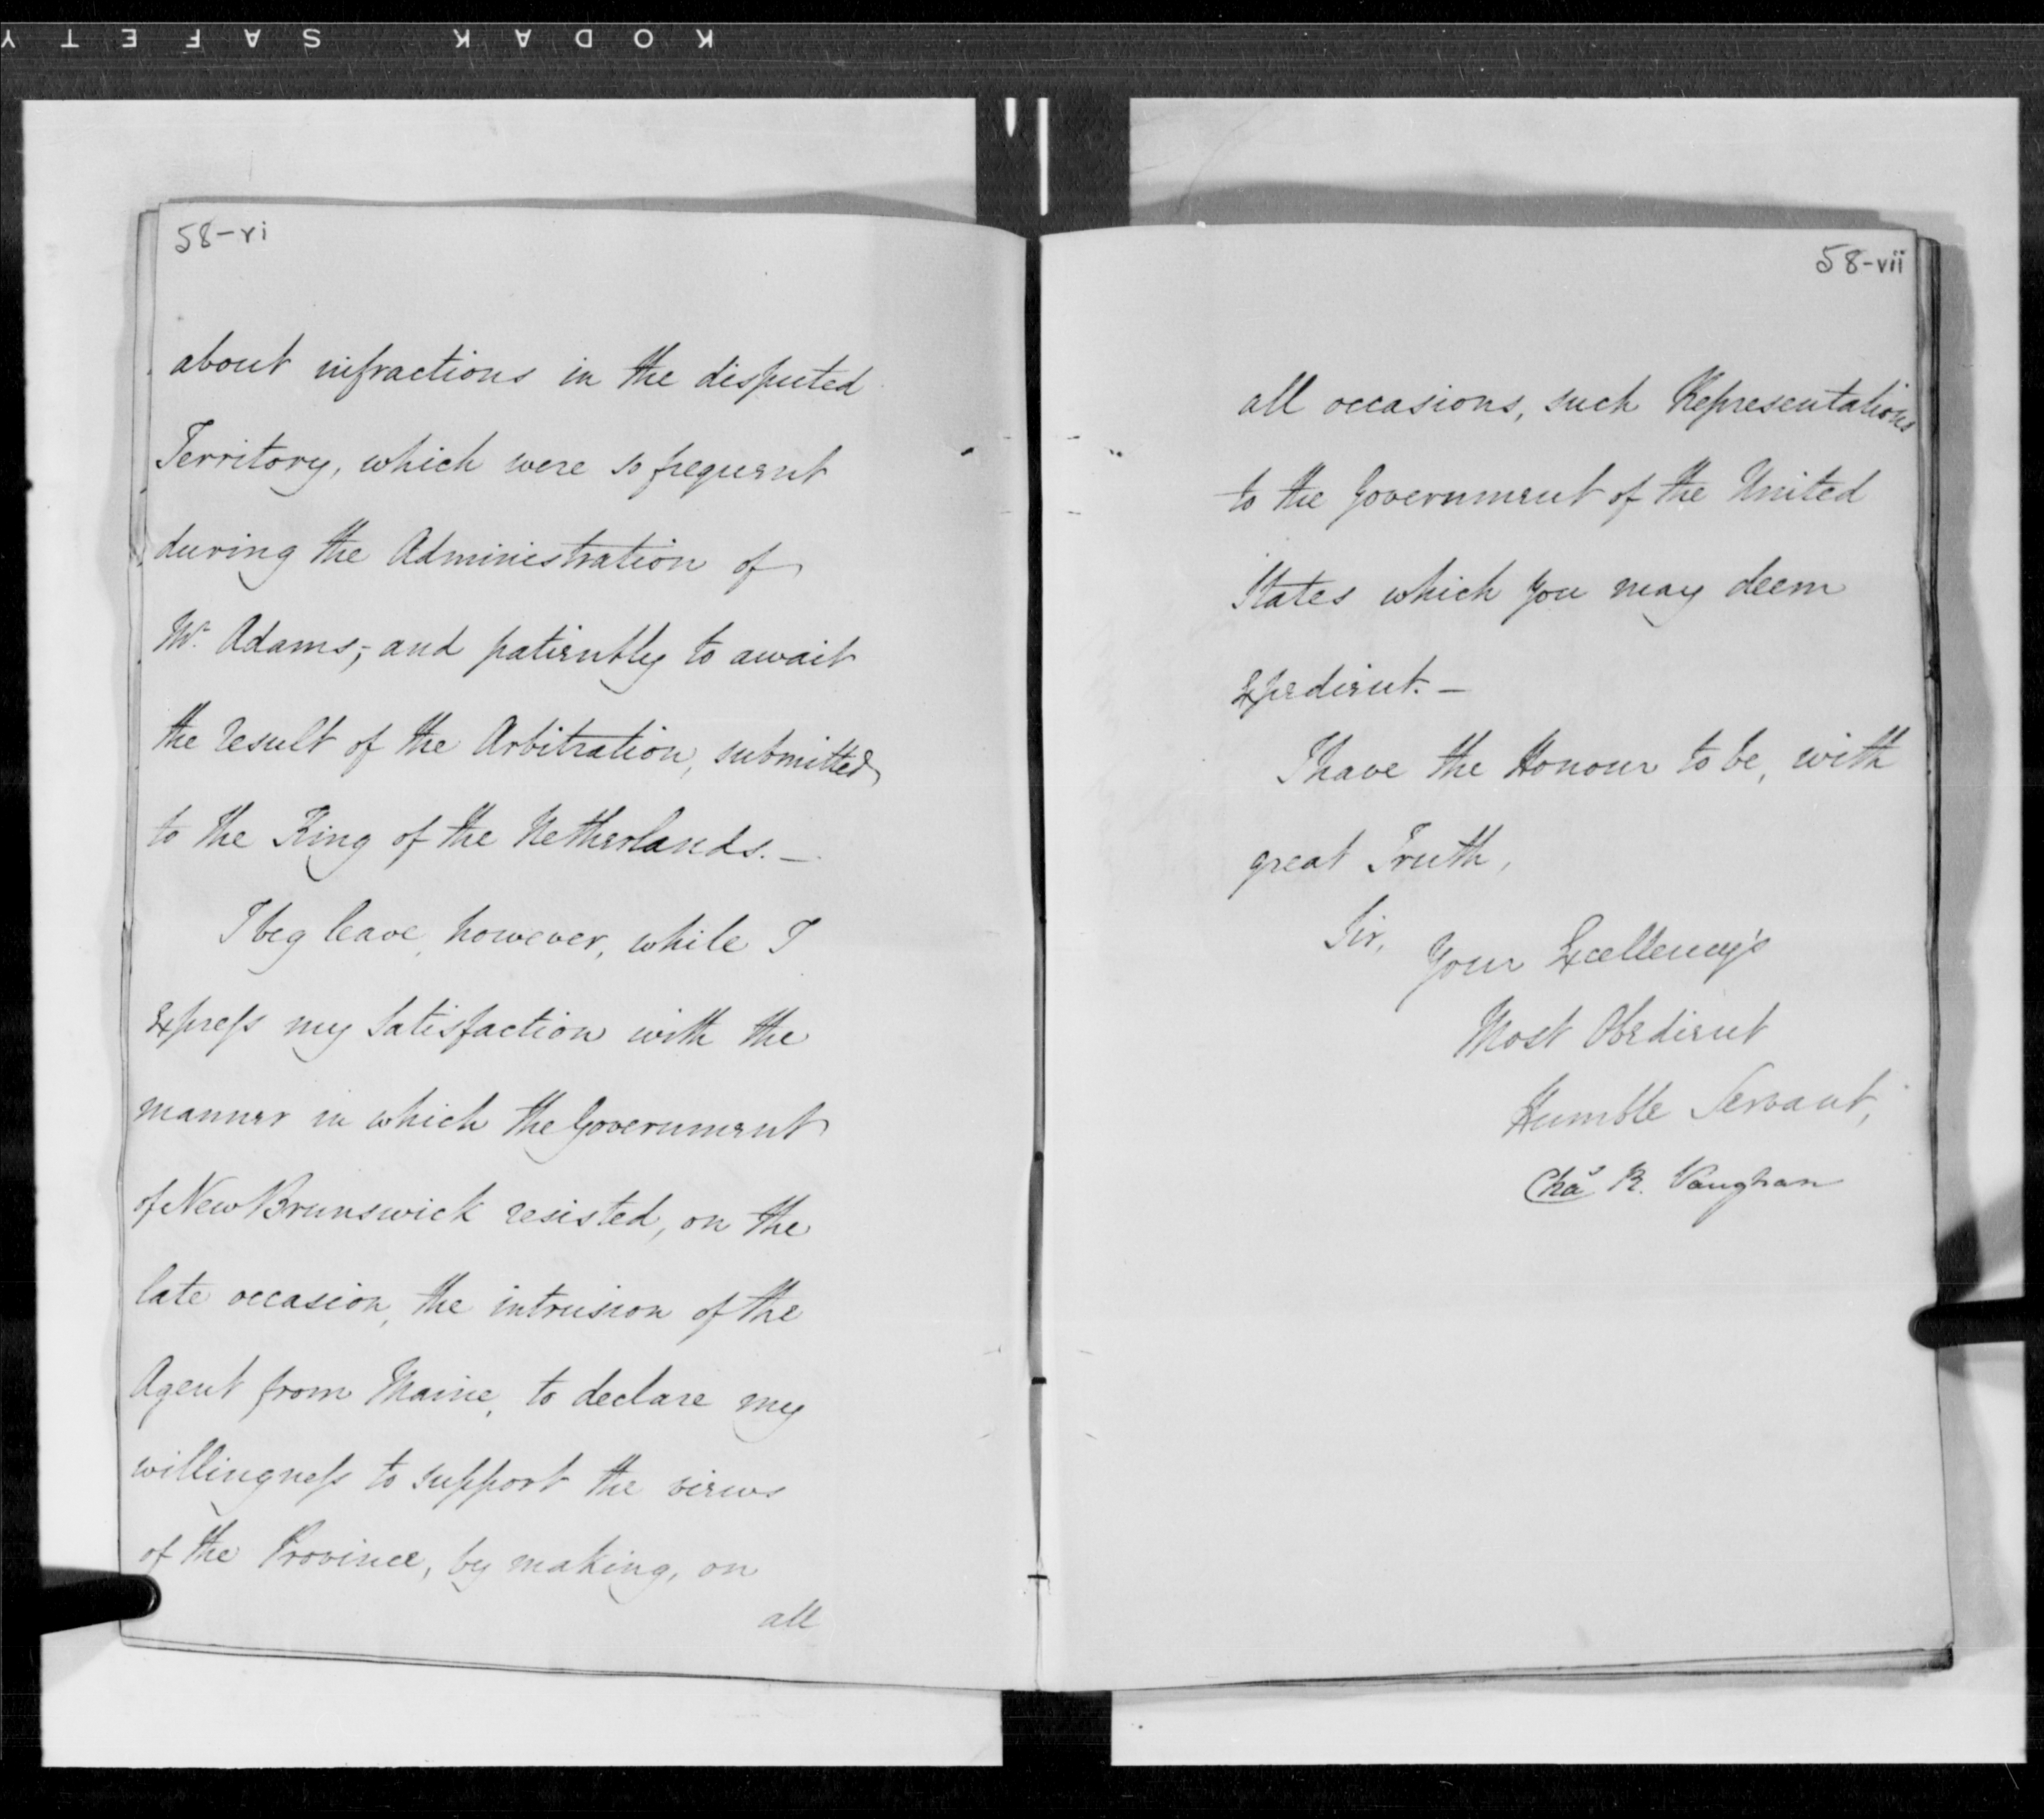 KODAK SAFETY
58-vi
about infractions in the disputed
Territory, which were so frequent
during the Administration of
Mr. Adams;- and patiently to await
the result of the Arbitration, submitted
to the King of the Netherlands.—
I beg leave, however, while I
express my satisfaction with the
manner in which the Government
of New Brunswick resisted, on the
late occasion, the intrusion of the
Agent from Maine, to declare my
willingness to support the views
of the Province, by making, on
all
58-vii
all occasions, such Representations
to the Government of the United
States which you may deem
expedient.—
I have the Honour to be, with
great Truth,
Sir,
Your Excellency's
Most Obedient
Humble Servant,
Chas R. Vaughan